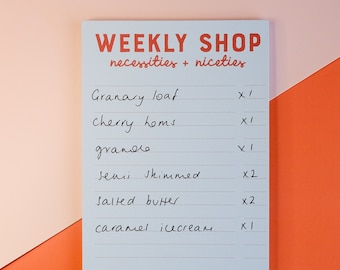 WEEKLY SHOP
necessities + niceties
Granary loaf x1
Cherry toms x1
granola x1
semi skimmed x2
salted butter x2
caramel icecream x1